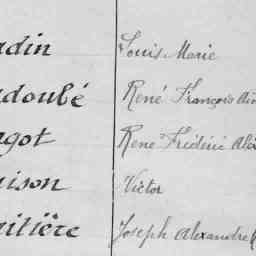 din Louis Marie
doubé René François
got René Frédéric
ison Victor
ilière Joseph Alexandre